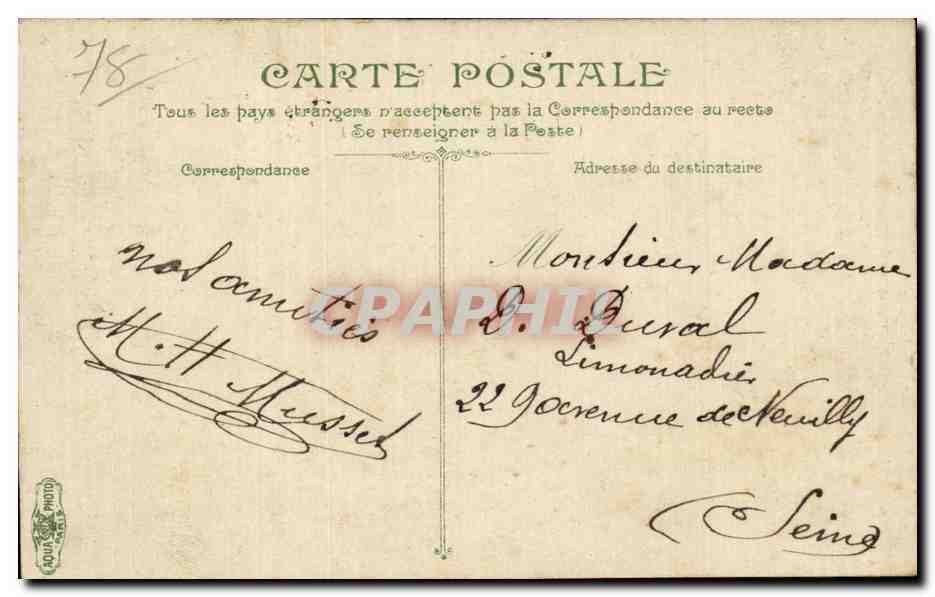 78
CARTE POSTALE
Tous les pays étrangers n'acceptent pas la Correspondance au recto
(Se renseigner à la Poste)
Correspondance
Adresse du destinataire
nos amitiés
M. H Musset
Monsieur Madame
D. Duval
Limonadier
229 avenue de Neuilly
Seine
CPAPHIL
AQUA PHOTO
PARIS